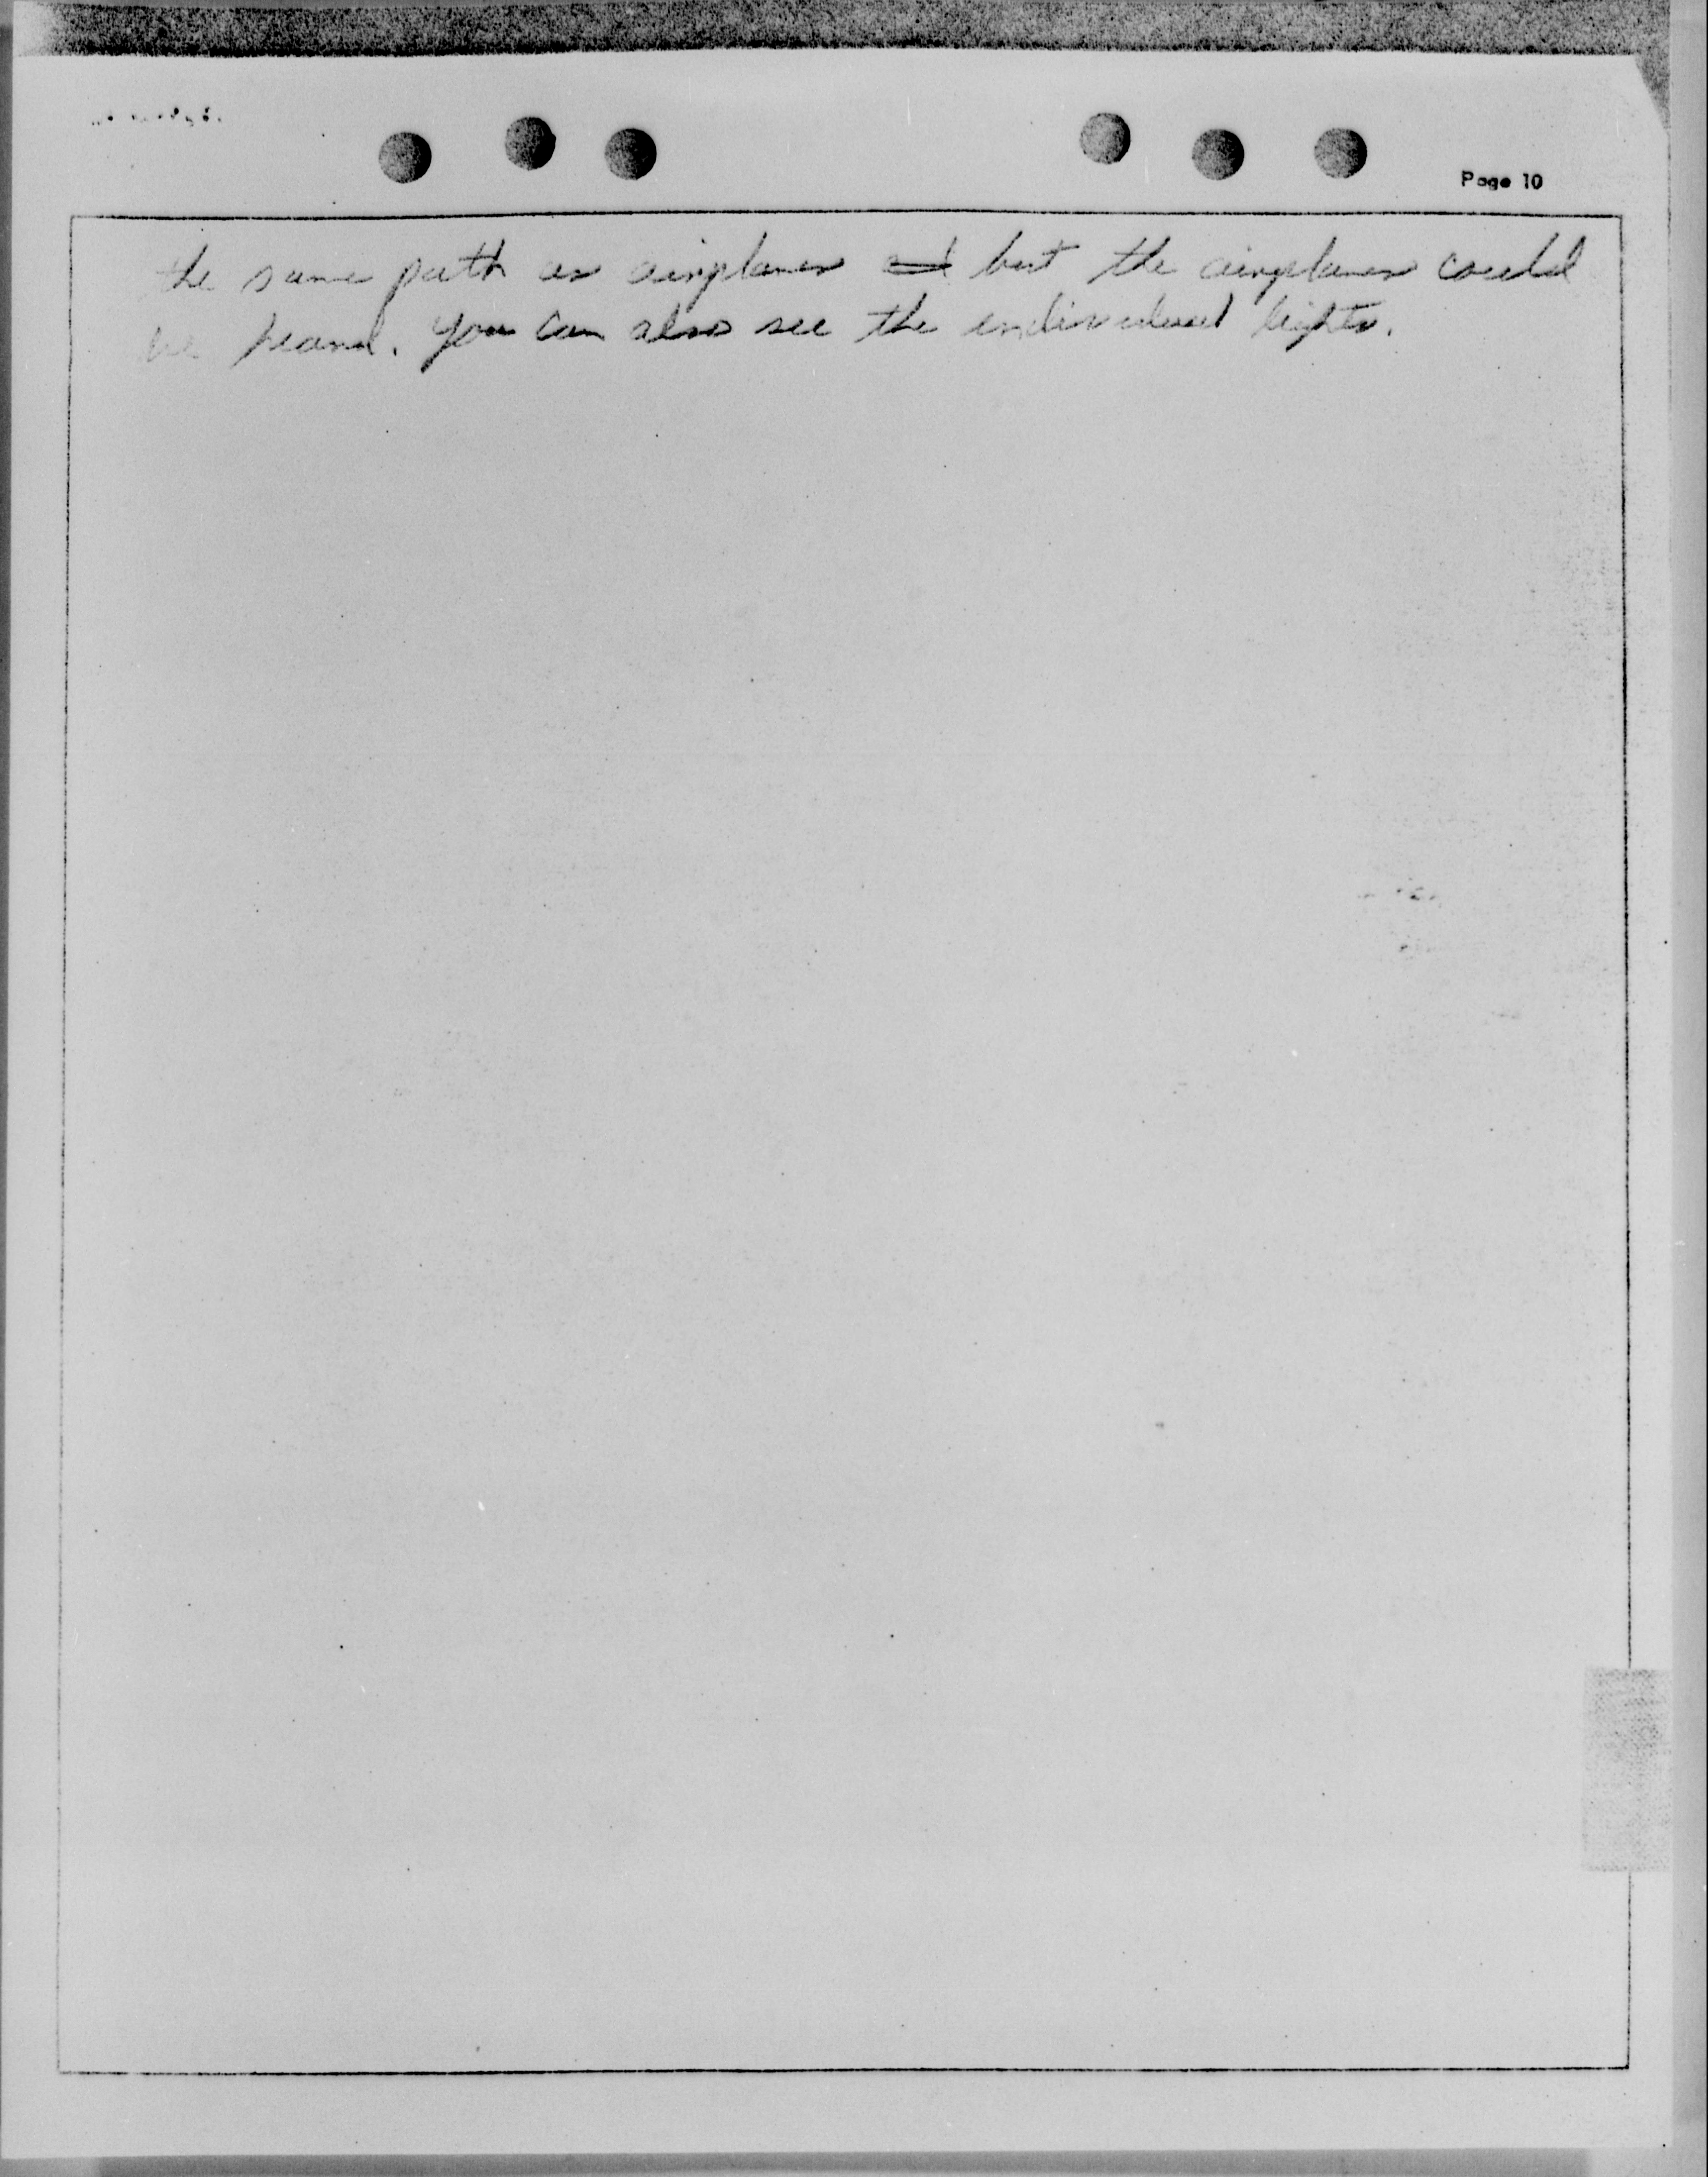 Page 10
the same path as airplanes and but the airplanes could
be heard. You can also see the individual lights.